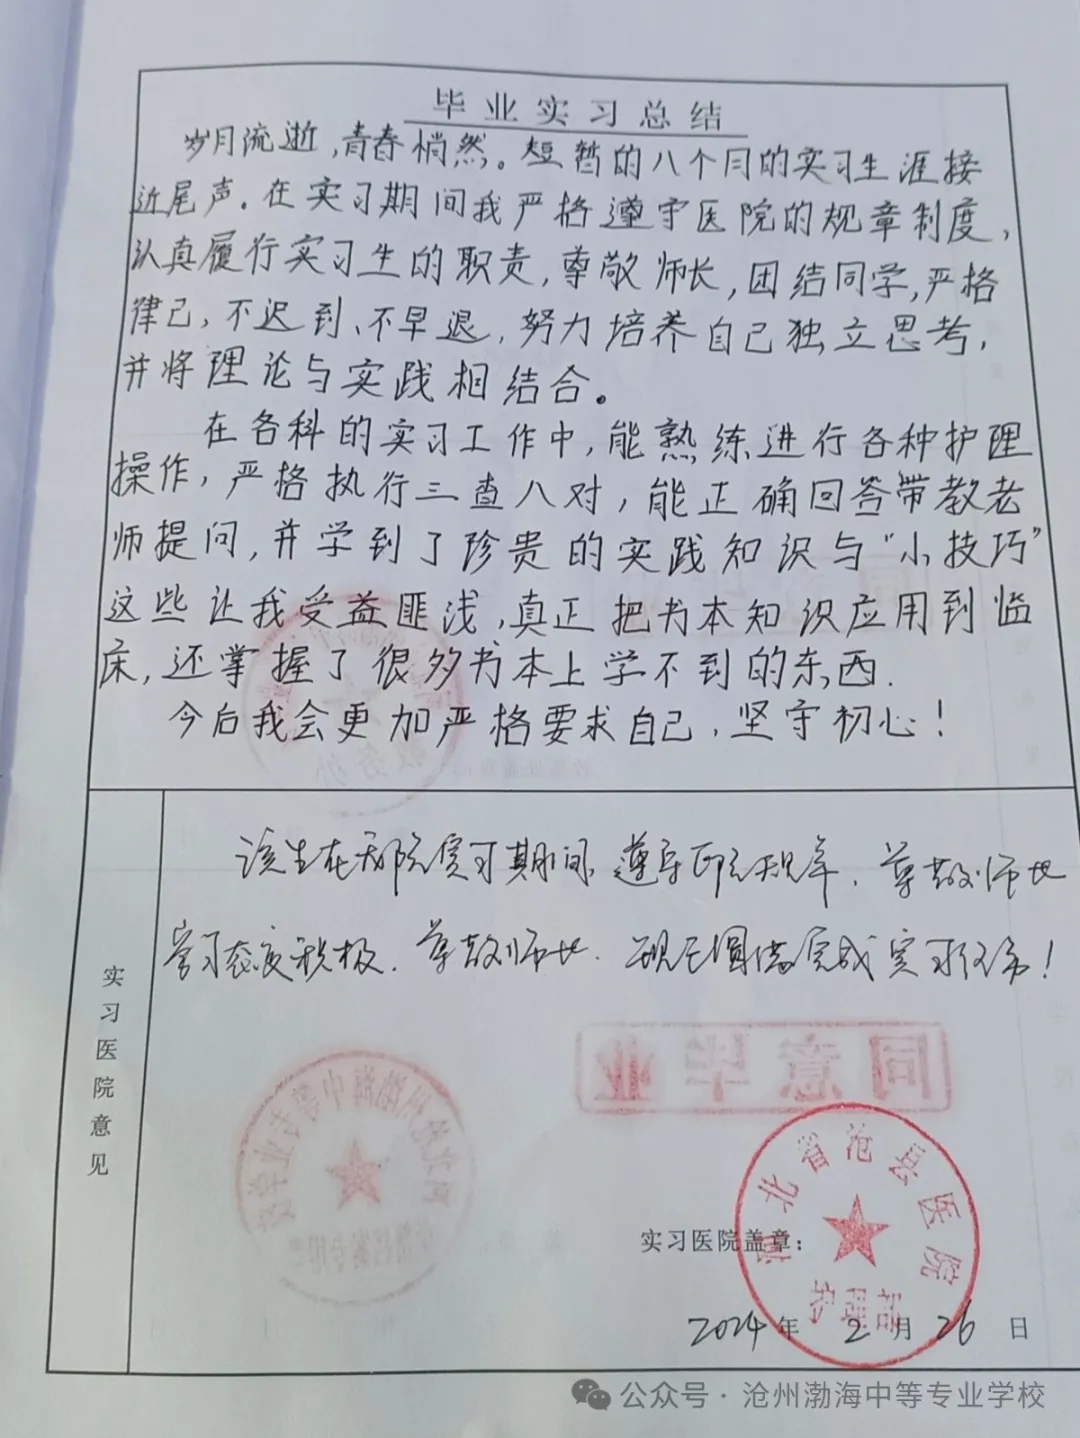 毕业实习总结
岁月流逝，青春悄然。短暂的八个月的实习生涯接
近尾声。在实习期间我严格遵守医院的规章制度，
认真履行实习生的职责，尊敬师长，团结同学，严格
律己，不迟到、不早退，努力培养自己独立思考，
并将理论与实践相结合。
在各科的实习工作中，能熟练进行各种护理
操作，严格执行三查八对，能正确回答带教老
师提问，并学到了珍贵的实践知识与“小技巧”
这些让我受益匪浅，真正把书本知识应用到临
床，还掌握了很多书本上学不到的东西.
今后我会更加严格要求自己，坚守初心！
该生在我院实习期间，遵守医院规章，尊敬师长
学习态度积极．尊敬师长．现已圆满完成实习任务！
实习医院意见
同意毕业
沧州渤海中等专业学校
河北省沧县医院
实习医院盖章：
2024年2月26日
公众号·沧州渤海中等专业学校